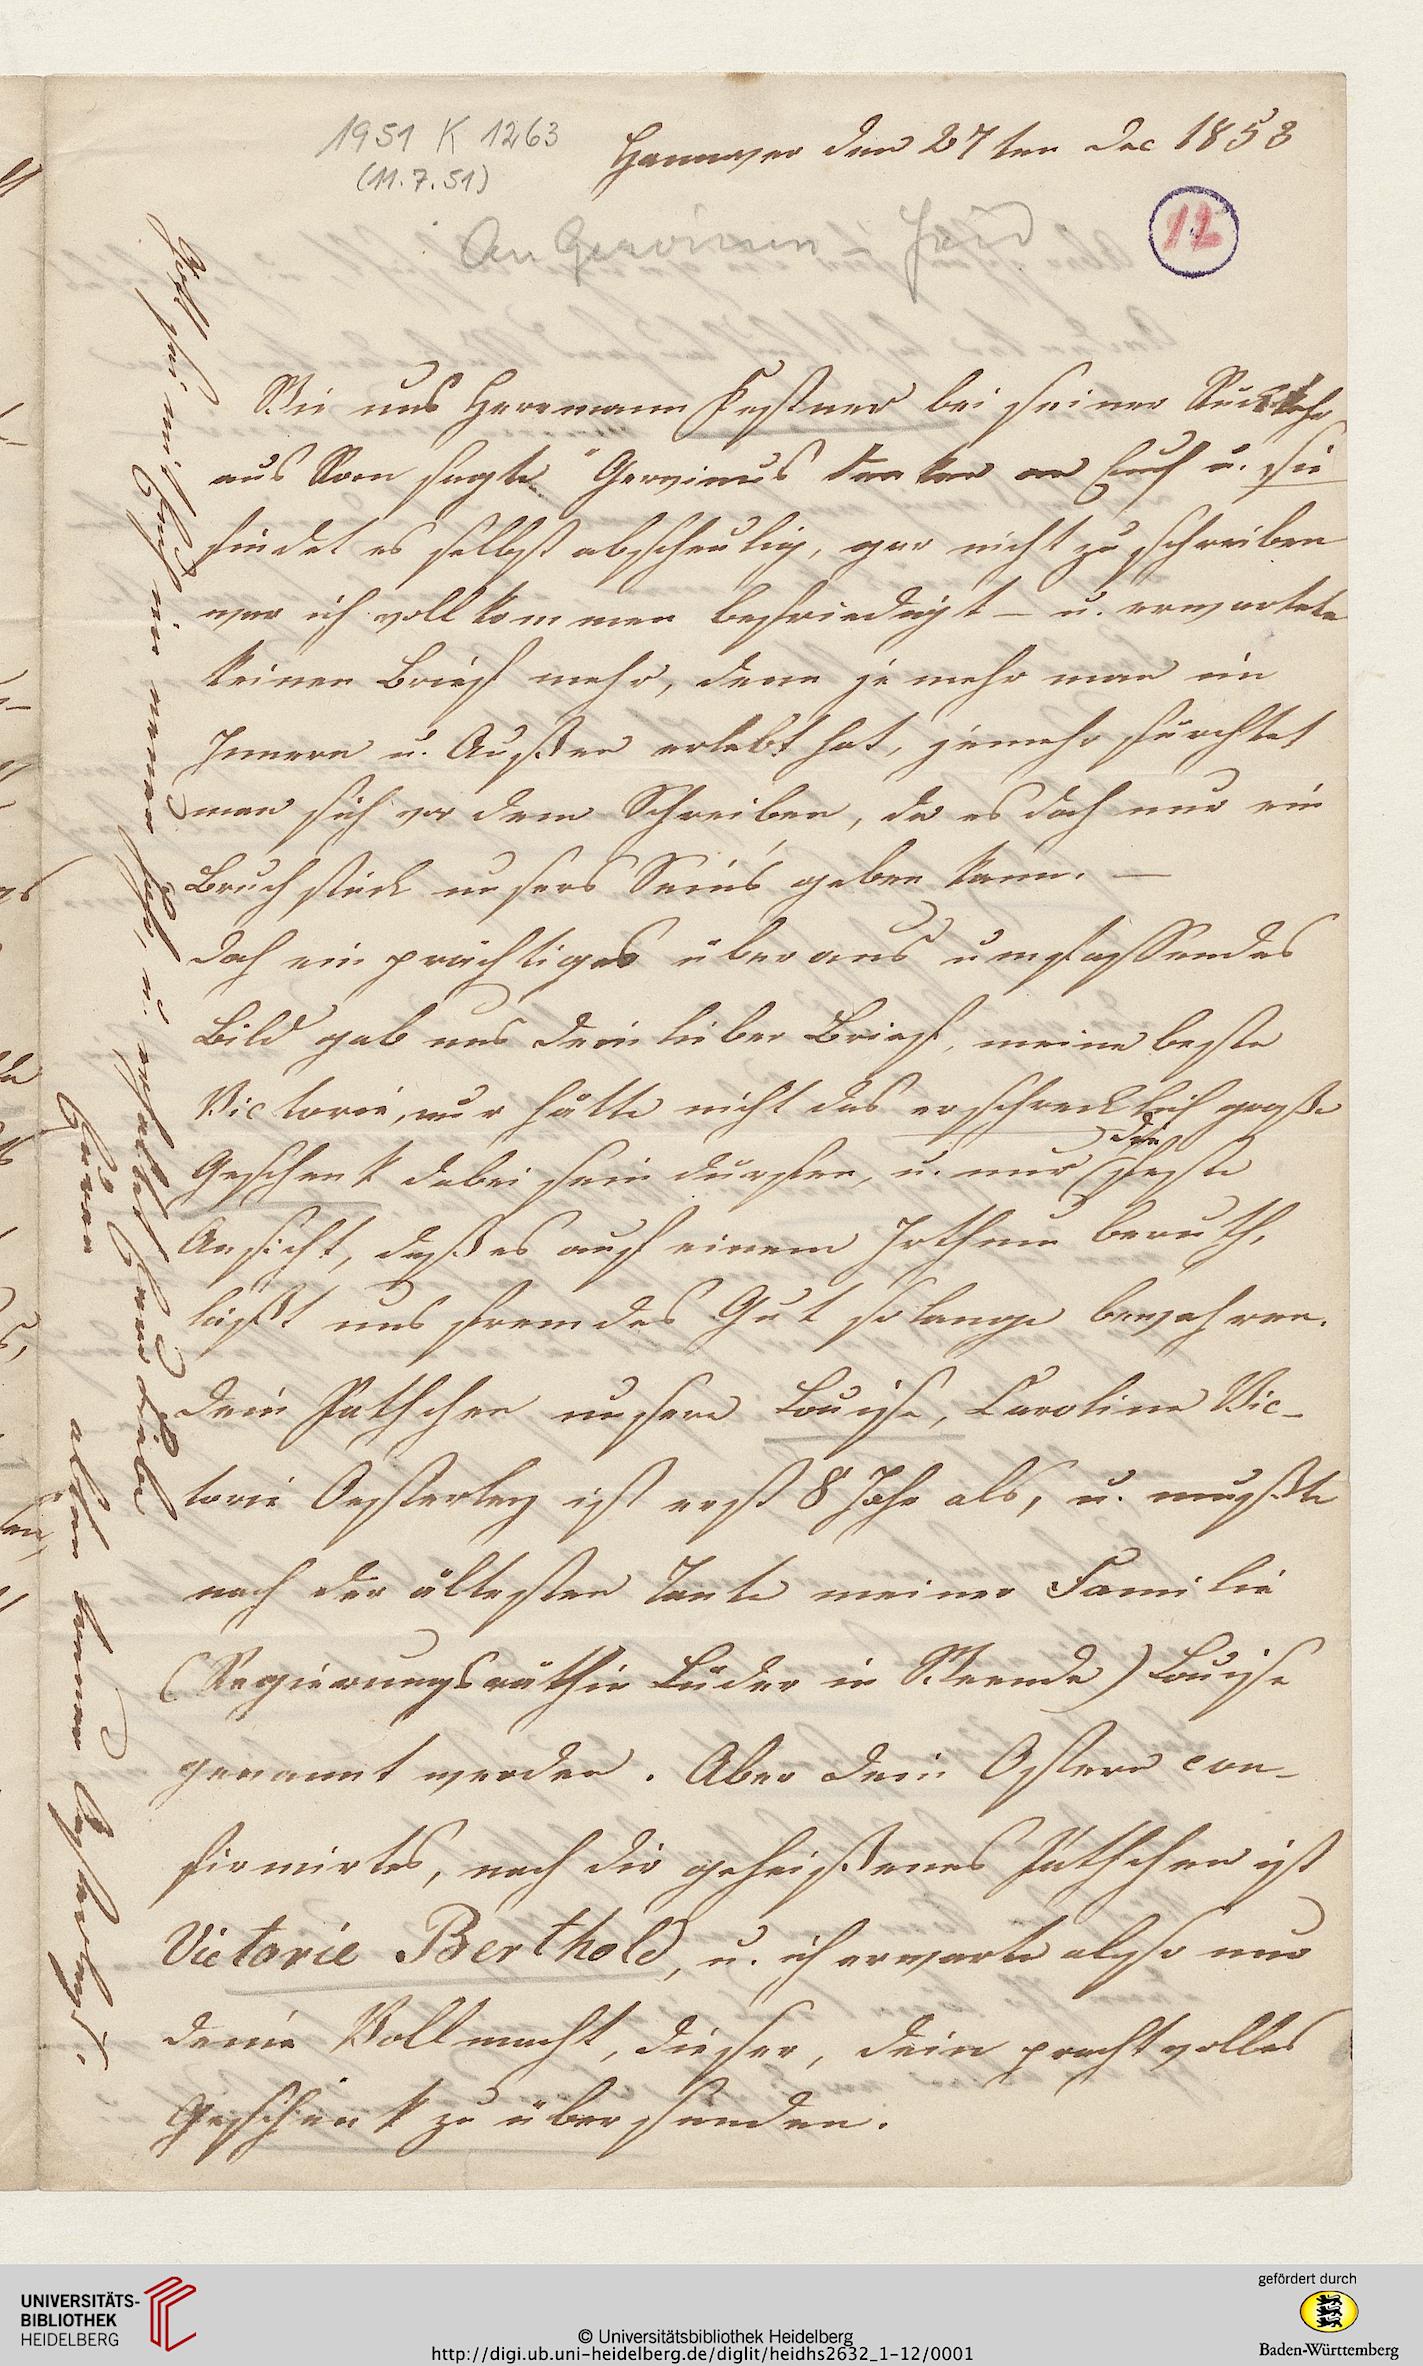 1951 K 1263
(11.7.51)
Hannover den 27ten Dec 1858
An Gervinus - Heid
12
Wie uns Herrmann Kestner bei seiner Rückkehr
aus Rom sagte "Gervinus denken an Euch u. sie
findet es selbst abscheulig, gar nicht zu schreiben
war ich vollkommen befriedigt – u. erwartete
keinen Brief mehr, denn je mehr man im
Innern u. Außen erlebt hat, jemehr fürchtet
man sich vor dem Schreiben, da es doch nur ein
Bruchstück unsers Sein's geben kann. —
Doch ein prächtiges überaus umfassendes
Bild gab uns Dein lieber Brief, meine beste
Victorie, nur hätte nicht das erschrecklich große
Geschenk dabei sein durfen, u. nur die feste
Ansicht, daß es auf einem Irthum beruth,
läßt uns fremdes Gut so lange bewahren.
Dein Pathchen unsere Louise, Caroline Vic-
torie Oesterley ist erst 8 Jahr alt, u. mußte
nach der ältesten Tante meiner Familie
(Regierungsräthin Lüder in Weende) Louise
genannt werden. Aber Dein Ostern con-
firmirtes, nach dir geheißenes Pathchen ist
Victorie Berthold, u. ich erwarte also nur
deine Vollmacht, dieser, dein prachtvolles
Geschenk zu übersenden.
Gott sei mit Euch im neuen Jahr, u. erhaltet Eure Liebe
Euren alten treuen Oesterley's.
UNIVERSITÄTS-
BIBLIOTHEK
HEIDELBERG
© Universitätsbibliothek Heidelberg
http://digi.ub.uni-heidelberg.de/diglit/heidhs2632_1-12/0001
gefördert durch
Baden-Württemberg